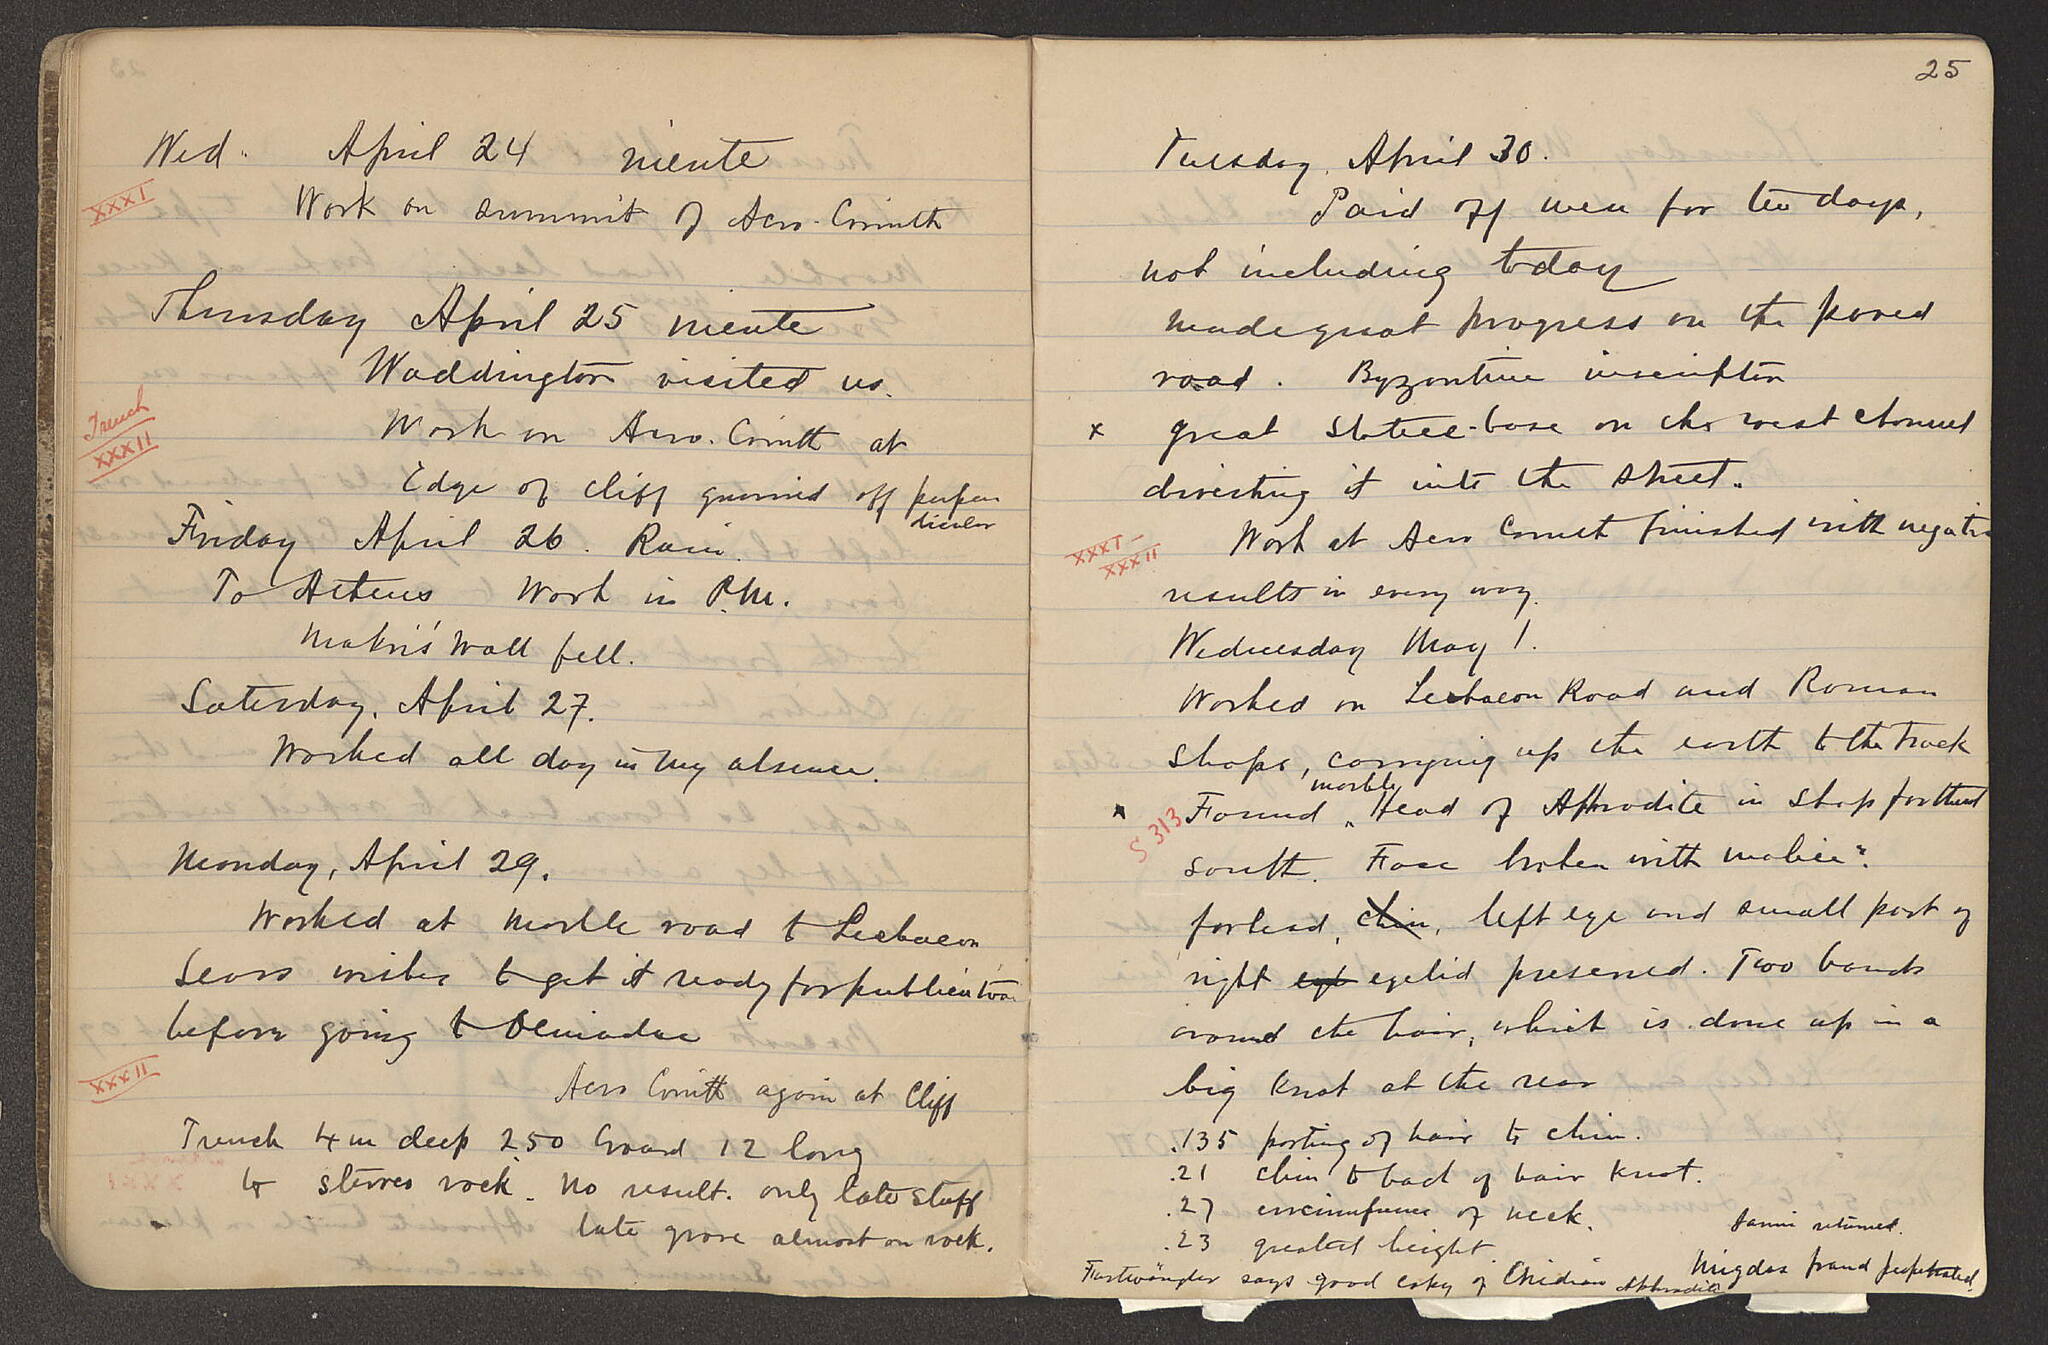 Wed. April 24 niente
XXXI
Work on summit of Acro-Corinth
Thursday April 25 niente
Waddington visited us.
Trench
XXXII
Work on Acro-Corinth at
Edge of cliff gnawed off perpen
dicular
Friday April 26. Rain.
To Athens Work in P.M.
Makri's wall fell.
Saturday, April 27.
Worked all day in my absence.
Monday, April 29.
Worked at marble road to Lechaeon
Sears wishes to get it ready for publication
before going to Oeniadae
XXXII
Acro Corinth again at Cliff
Trench 4m deep 2.50 broad 12 long
to stereo rock. No result. only late stuff
late grave almost on rock.
25
Tuesday, April 30.
Paid off men for ten days,
not including today
made great progress on the paved
road. Byzantine inscription
x great statue-base on the west channel
diverting it into the street.
XXXI -
XXXII
Work at Acro Corinth finished with negative
results in every way.
Wednesday May 1.
Worked on Lechaeon Road and Roman
shops, carrying up the earth to the track
marble
x S 313 Found Head of Aphrodite in shop farthest
south. Face broken with malice".
forhead, chin, left eye and small part of
right eye eyelid preserved. Two bands
around the hair, which is done up in a
big knot at the rear
.135 parting of hair to chin.
.21 chin to back of hair knot.
.27 circumference of neck.
.23 greatest height
returned.
Furtwängler says good copy of Cnidian Aphrodite
fraud perpetrated.